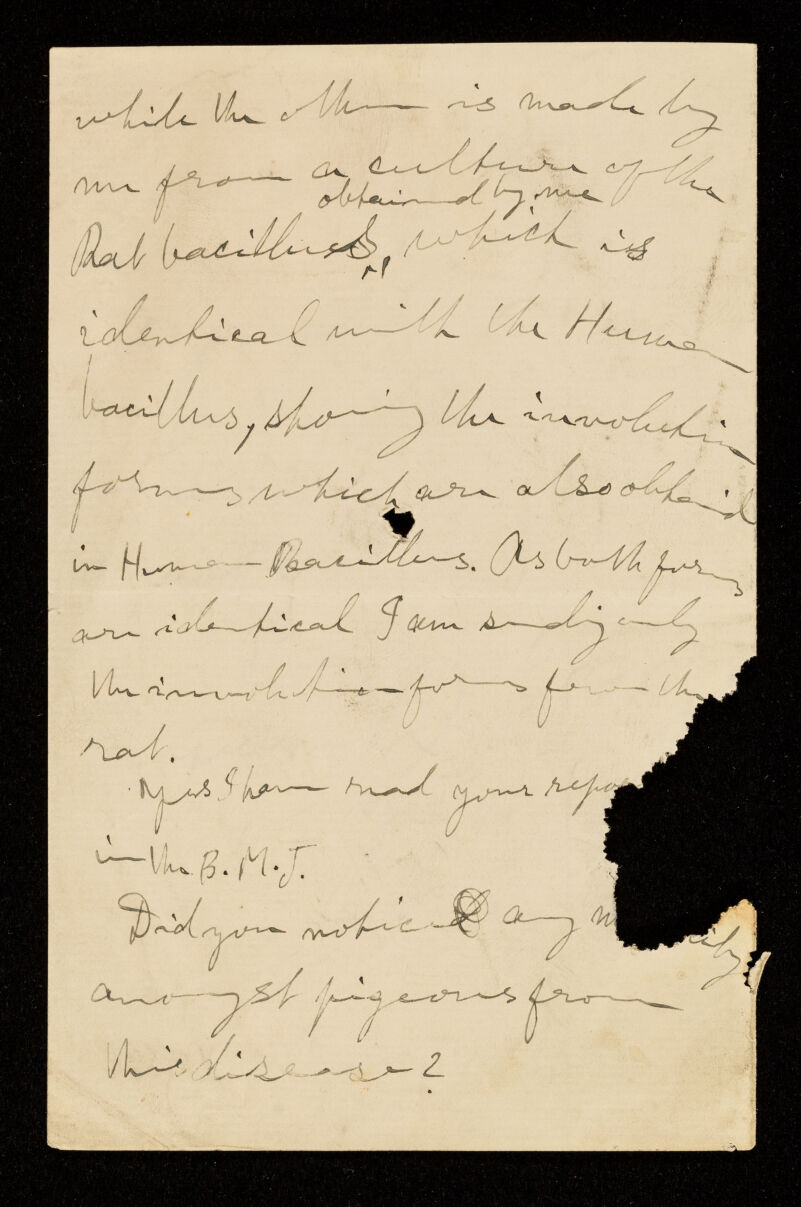 while the other is made by
me from a culture of the
obtained by me
Rat bacillus, which is
identical with the Human
bacillus, showing the involution
forms which are also obtaind
in Human Bacillus. As both forms
are identical I am sending only
the involution forms from the
rat.
Yes I have read your repo
in the B. M. J.
Did you notice any
amongst pigeons from
this disease?